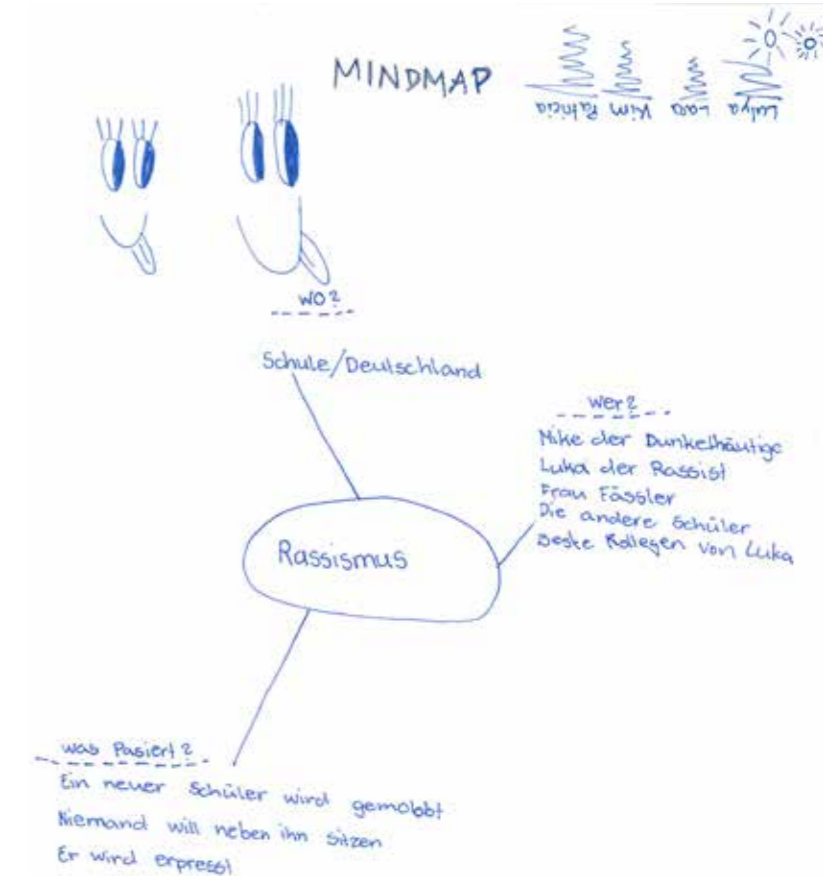 MINDMAP
Patricia Kim Lara Luiya
wo?
Schule/Deutschland
wer?
Mike der Dunkelhäutige
Luka der Rassist
Frau Fässler
Die andere Schüler
Beste Kollegen von Luka
Rassismus
was Pasiert?
Ein neuer Schüler wird gemobbt
Niemand will neben ihn sitzen
Er wird erpresst